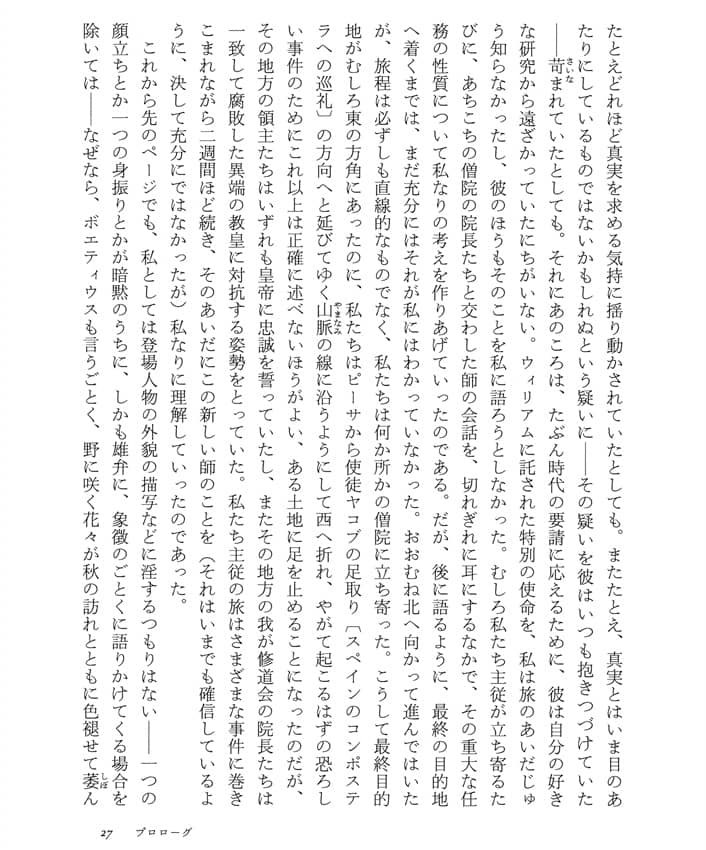 たとえどれほど真実を求める気持に揺り動かされていたとしても。またたとえ、真実とはいま目のあ
たりにしているものではないかもしれぬという疑いに――その疑いを彼はいつも抱きつづけていた
――苛まれていたとしても。それにあのころは、たぶん時代の要請に応えるために、彼は自分の好き
な研究から遠ざかっていたにちがいない。ウィリアムに託された特別の使命を、私は旅のあいだじゅ
う知らなかったし、彼のほうもそのことを私に語ろうとしなかった。むしろ私たち主従が立ち寄るた
びに、あちこちの僧院の院長たちと交わした師の会話を、切れぎれに耳にするなかで、その重大な任
務の性質について私なりの考えを作りあげていったのである。だが、後に語るように、最終の目的地
へ着くまでは、まだ充分にはそれが私にはわかっていなかった。おおむね北へ向かって進んではいた
が、旅程は必ずしも直線的なものでなく、私たちは何か所かの僧院に立ち寄った。こうして最終目的
地がむしろ東の方角にあったのに、私たちはピーサから使徒ヤコブの足取り〔スペインのコンポステ
ラへの巡礼〕の方向へと延びてゆく山脈の線に沿うようにして西へ折れ、やがて起こるはずの恐ろし
い事件のためにこれ以上は正確に述べないほうがよい、ある土地に足を止めることになったのだが、
その地方の領主たちはいずれも皇帝に忠誠を誓っていたし、またその地方の我が修道会の院長たちは
一致して腐敗した異端の教皇に対抗する姿勢をとっていた。私たち主従の旅はさまざまな事件に巻き
こまれながら二週間ほど続き、そのあいだにこの新しい師のことを（それはいまでも確信しているよ
うに、決して充分にではなかったが）私なりに理解していったのであった。
　これから先のページでも、私としては登場人物の外貌の描写などに淫するつもりはない――一つの
顔立ちとか一つの身振りとかが暗黙のうちに、しかも雄弁に、象徴のごとくに語りかけてくる場合を
除いては――なぜなら、ボエティウスも言うごとく、野に咲く花々が秋の訪れとともに色褪せて萎ん
さいな
やまなみ
しぼ
27 プロローグ